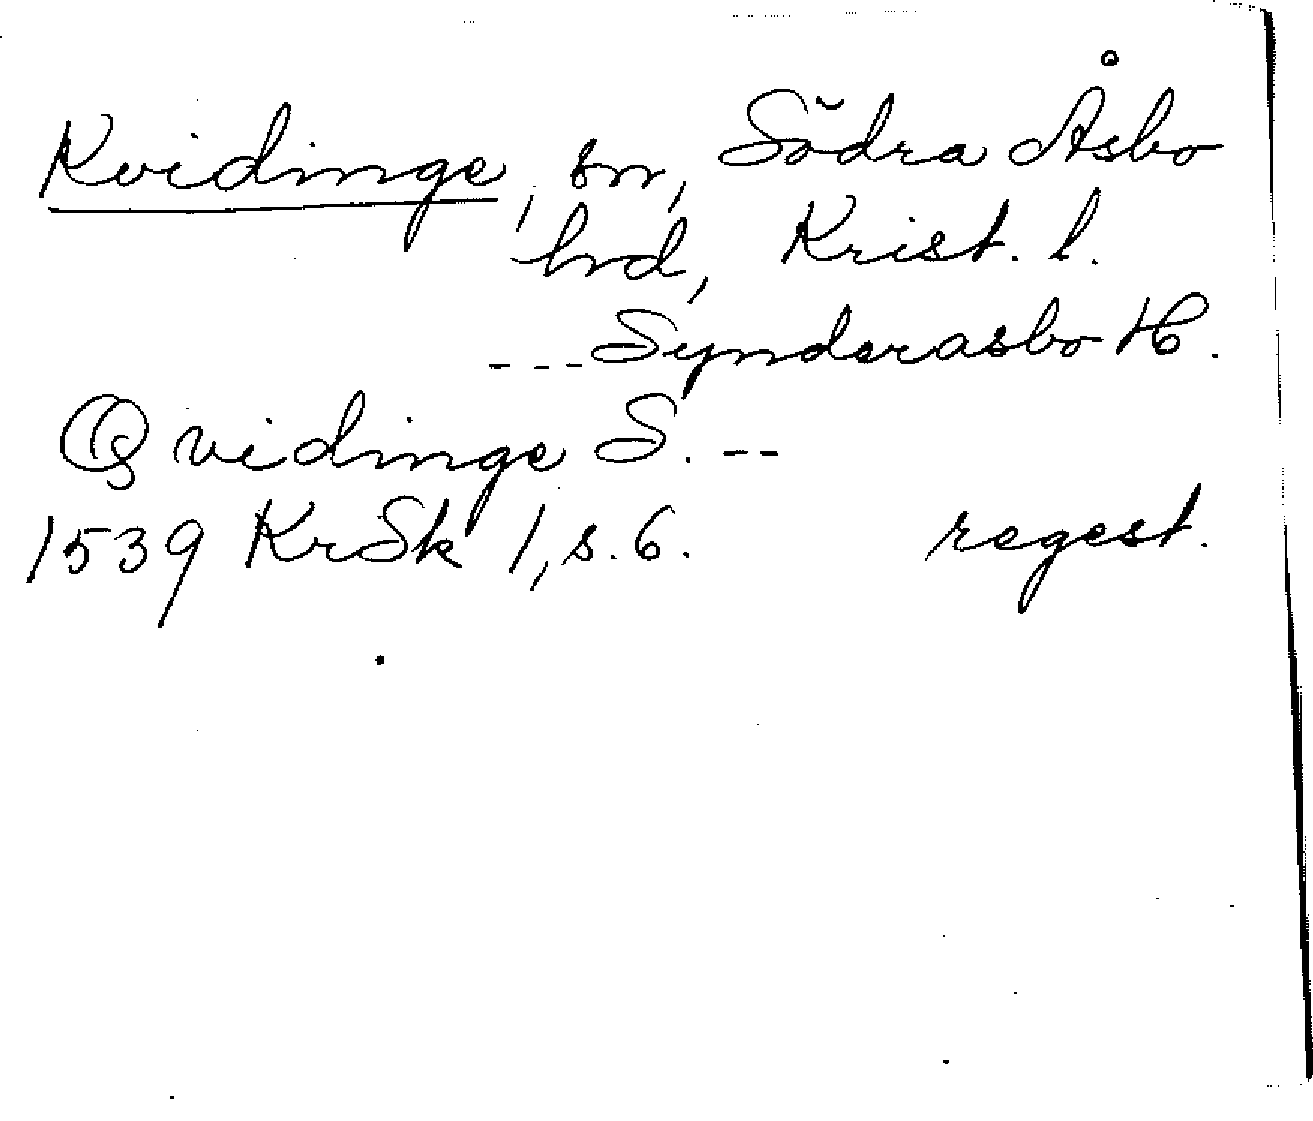 Kvidinge, sn, Södra Åsbo
hrd, Krist. l.
--- Synderasbo H.
Qvidinge S. --
1539 KrSk 1, s. 6. regest.